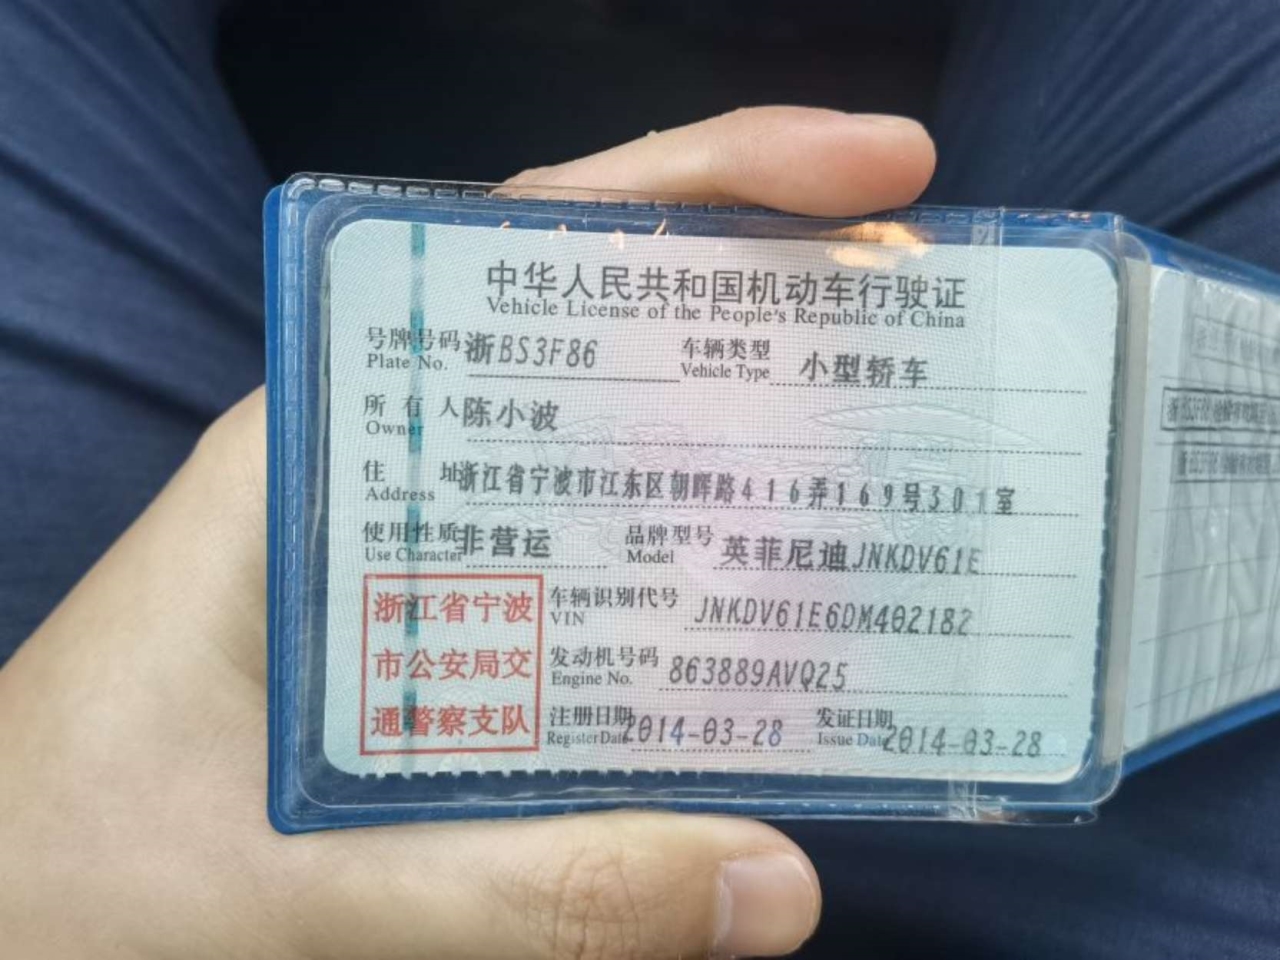 中华人民共和国机动车行驶证
Vehicle License of the People's Republic of China
号牌号码 浙BS3F86 车辆类型 小型轿车
Plate No. Vehicle Type
所有人 陈小波
Owner
住址 浙江省宁波市江东区朝晖路416弄169号301室
Address
使用性质 非营运 品牌型号 英菲尼迪JNKDV61E
Use Character Model
浙江省宁波
市公安局交
通警察支队
车辆识别代号 JNKDV61E6DM402182
VIN
发动机号码 863889AVQ25
Engine No.
注册日期 2014-03-28 发证日期 2014-03-28
Register Date Issue Date